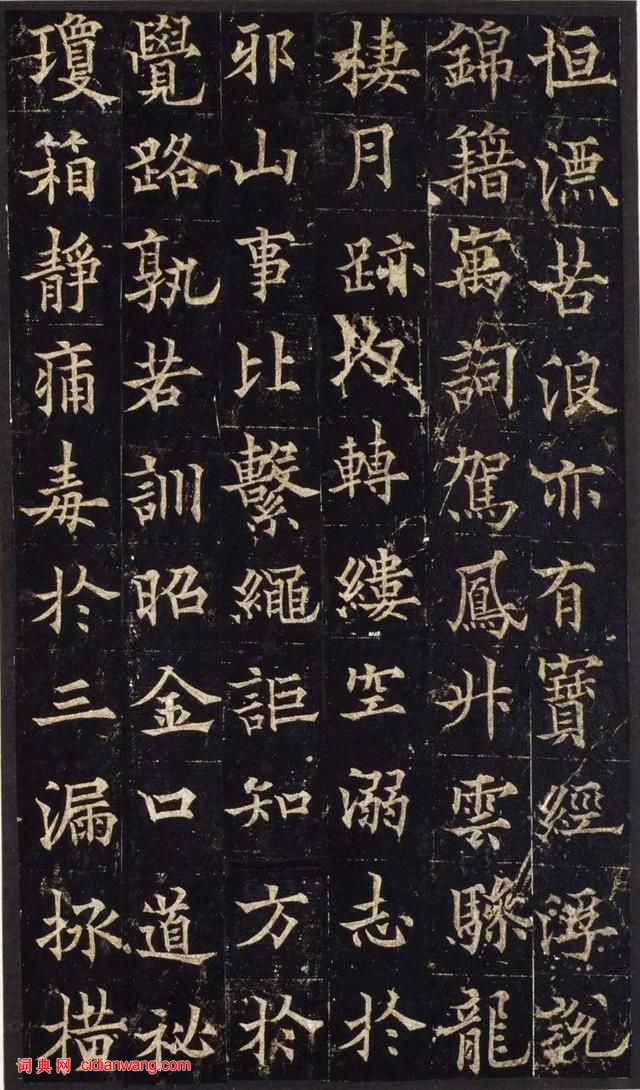 恒漂苦浪亦有寶經浮說
錦籍寓詞駕鳳升雲驂龍
棲月跡均轉縷空溺志於
邪山事比繫繩詎知方於
覺路孰若訓昭金口道祕
瓊箱靜痛毒於三漏拯橫
词典网：cidianwang.com